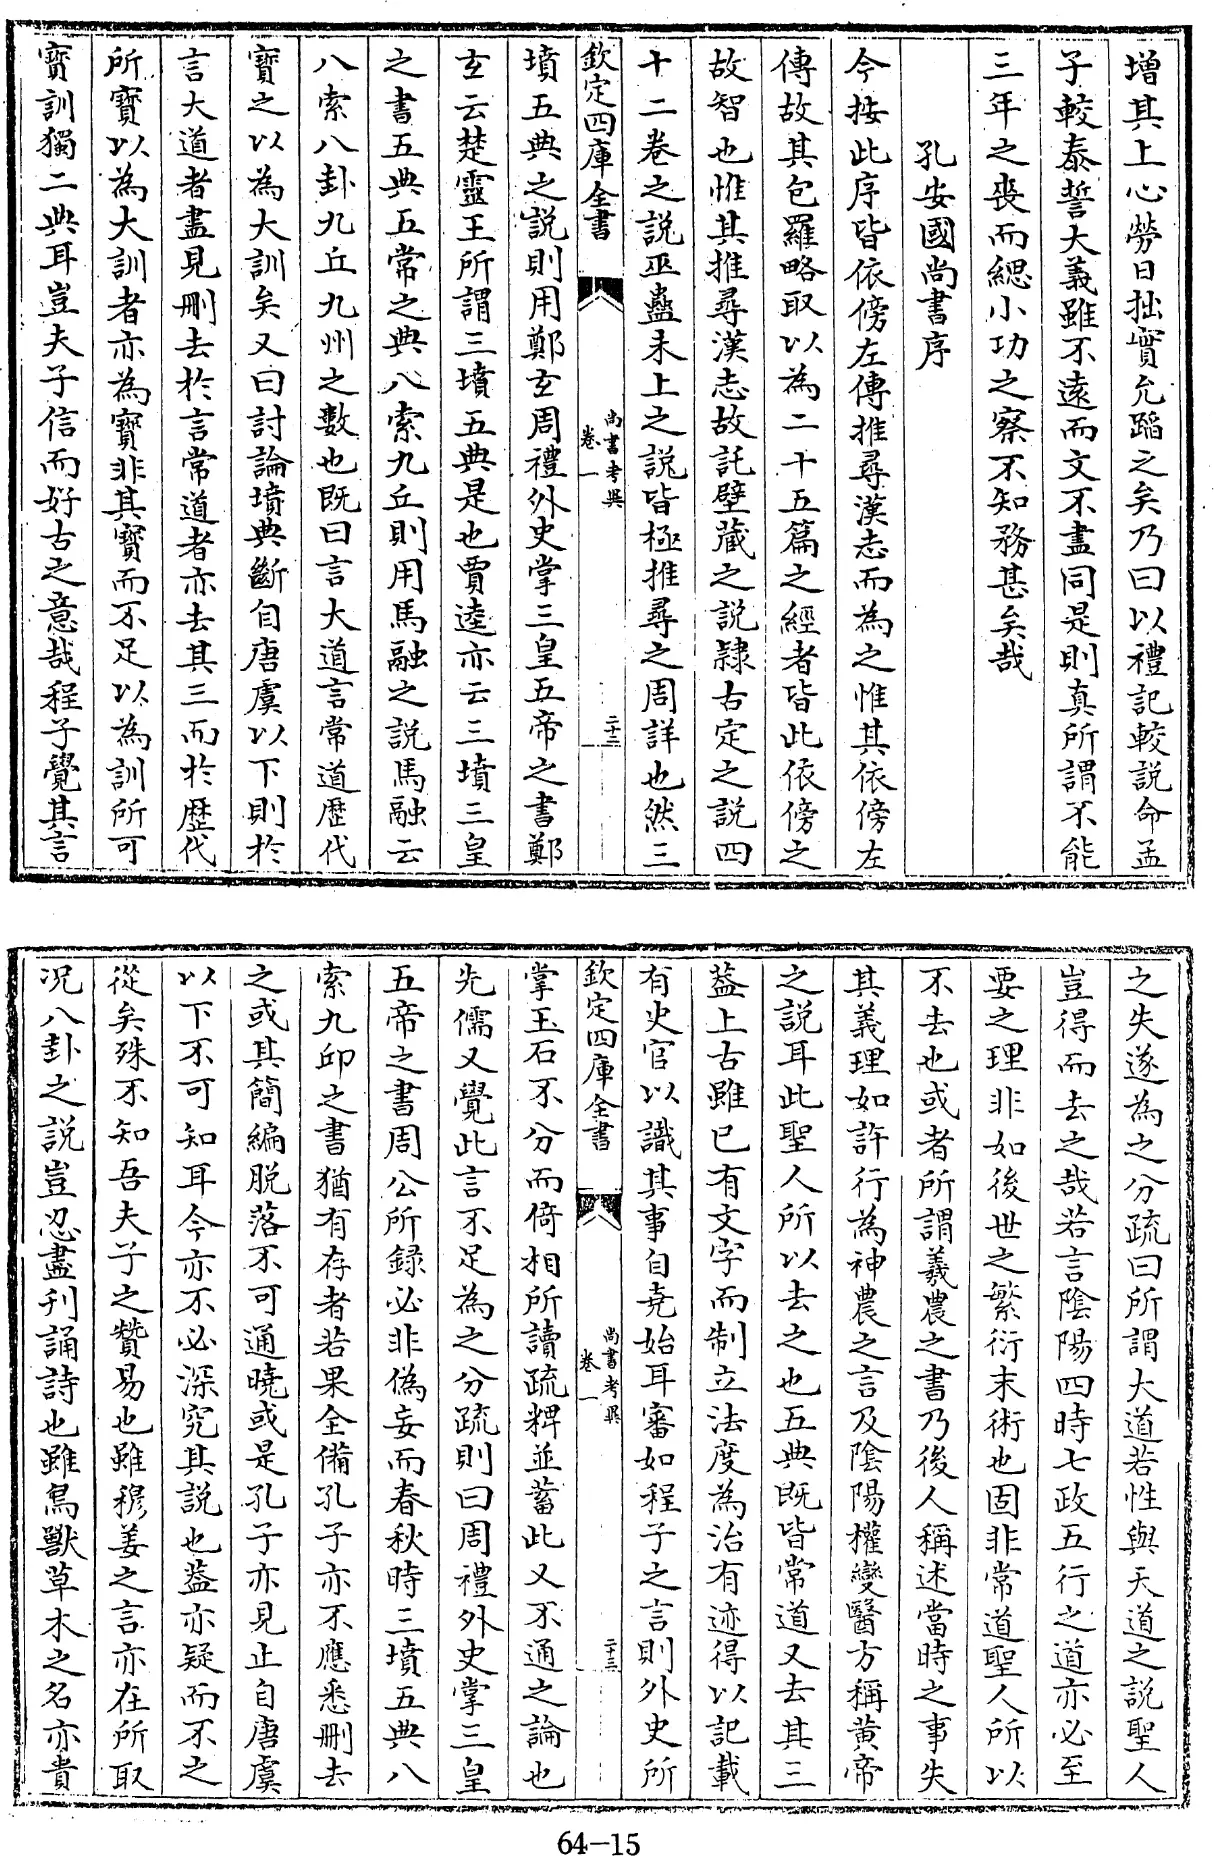 增其上心勞日拙實允蹈之矣乃曰以禮記較説命孟
子較泰誓大義雖不遠而文不盡同是則真所謂不能
三年之喪而緦小功之察不知務甚矣哉
孔安國尚書序
今按此序皆依傍左傳推尋漢志而為之惟其依傍左
傳故其包羅略取以為二十五篇之經者皆此依傍之
故智也惟其推尋漢志故託壁藏之説隸古定之説四
十二卷之説巫蠱未上之説皆極推尋之周詳也然三
欽定四庫全書
尚書考異
卷一
二十二
墳五典之説則用鄭玄周禮外史掌三皇五帝之書鄭
玄云楚靈王所謂三墳五典是也賈逵亦云三墳三皇
之書五典五常之典八索九丘則用馬融之説馬融云
八索八卦九丘九州之數也既曰言大道言常道歷代
寶之以為大訓矣又曰討論墳典斷自唐虞以下則於
言大道者盡見刪去於言常道者亦去其三而於歷代
所寶以為大訓者亦為寶非其寶而不足以為訓所可
寶訓獨二典耳豈夫子信而好古之意哉程子覺其言
之失遂為之分疏曰所謂大道若性與天道之説聖人
豈得而去之哉若言陰陽四時七政五行之道亦必至
要之理非如後世之繁衍末術也固非常道聖人所以
不去也或者所謂羲農之書乃後人稱述當時之事失
其義理如許行為神農之言及陰陽權變醫方稱黃帝
之説耳此聖人所以去之也五典既皆常道又去其三
蓋上古雖已有文字而制立法度為治有迹得以記載
有史官以識其事自堯始耳審如程子之言則外史所
欽定四庫全書
尚書考異
卷一
二十三
掌玉石不分而倚相所讀疏粺並蓄此又不通之論也
先儒又覺此言不足為之分疏則曰周禮外史掌三皇
五帝之書周公所錄必非偽妄而春秋時三墳五典八
索九邱之書猶有存者若果全備孔子亦不應悉刪去
之或其簡編脱落不可通曉或是孔子亦見止自唐虞
以下不可知耳今亦不必深究其説也蓋亦疑而不之
從矣殊不知吾夫子之贊易也雖穆姜之言亦在所取
況八卦之説豈忍盡刋誦詩也雖鳥獸草木之名亦貴
64-15